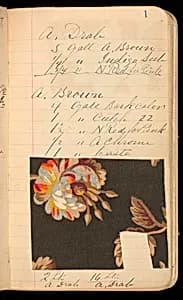 1
A. Drab
5 Gall A. Brown
" Indigo Sub
" N Red for Pink
A. Brown
4 Gall Bark Color
1 " Cutch 22
1½ " N Red for Pink
½ " A Chrome
1 "
2 16
A. Drab A. Drab